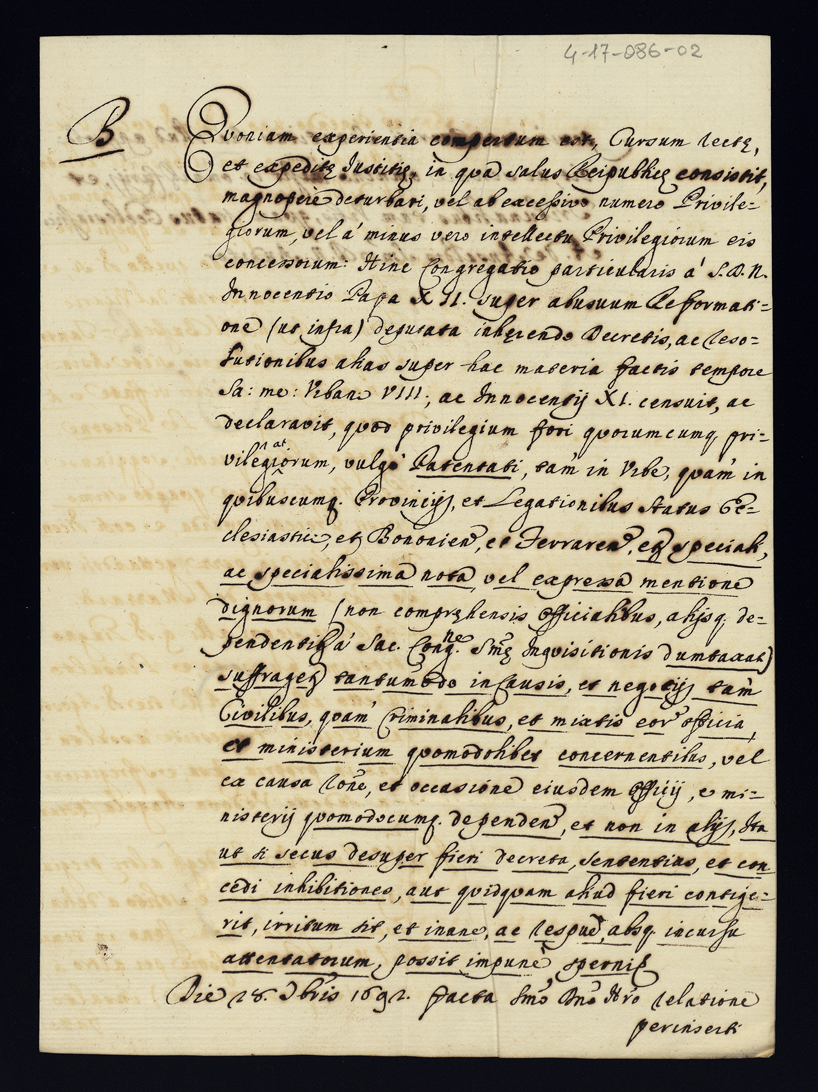 4-17-086-02
B
Quoniam experientia compertum est, Cursum rectę,
et expeditę Justitię, in qua salus Reipublicę consistit,
magnopere deturbari, vel ab excessivo numero Privile=
giorum, vel a' minus vero intellectu Privilegiorum eis
concessorum: Hinc Congregatio particularis a' S.D.N.
Innocentio Papa XII. super abusuum Reformati=
one (ut infra) deputata inhęrendo Decretis, ac reso=
lutionibus alias super hac materia factis tempore
Sa: me: Urbani VIII, ac Innocentij XI. censuit, ac
declaravit, quod privilegium fori quorumcumq. pri=
vilegiatorum, vulgo' Patentati, tam in Urbe, quam in
quibuscumq. Provincijs, et Legationibus Status Ec=
clesiastici, et Bononien, et Ferraren, et speciali,
ac specialissima nota, vel expressa mentione
dignorum (non compręhensis officialibus, alijsq. de=
pendentibus a' Sac. Congne. Smę Inquisitionis dumtaxat)
suffragetur tantummodo in Causis, et negotijs tam
Civilibus, quam Criminalibus, et mixtis eor officia,
et ministerium quomodolibet concernentibus, vel
ex causa rone, et occasione eiusdem officij, e mi=
nisterij quomodocumq. dependen, et non in alijs, Ita
ut si secus desuper fieri decreta, sententias, et con
cedi inhibitiones, aut quidquam aliud fieri contige=
rit, irritum sit, et inane, ac respue, absq. incursu
attentatorum, possit impune, sperni
Die 18. Xbris 1692. facta Smo Dno Nro relatione
per inserti